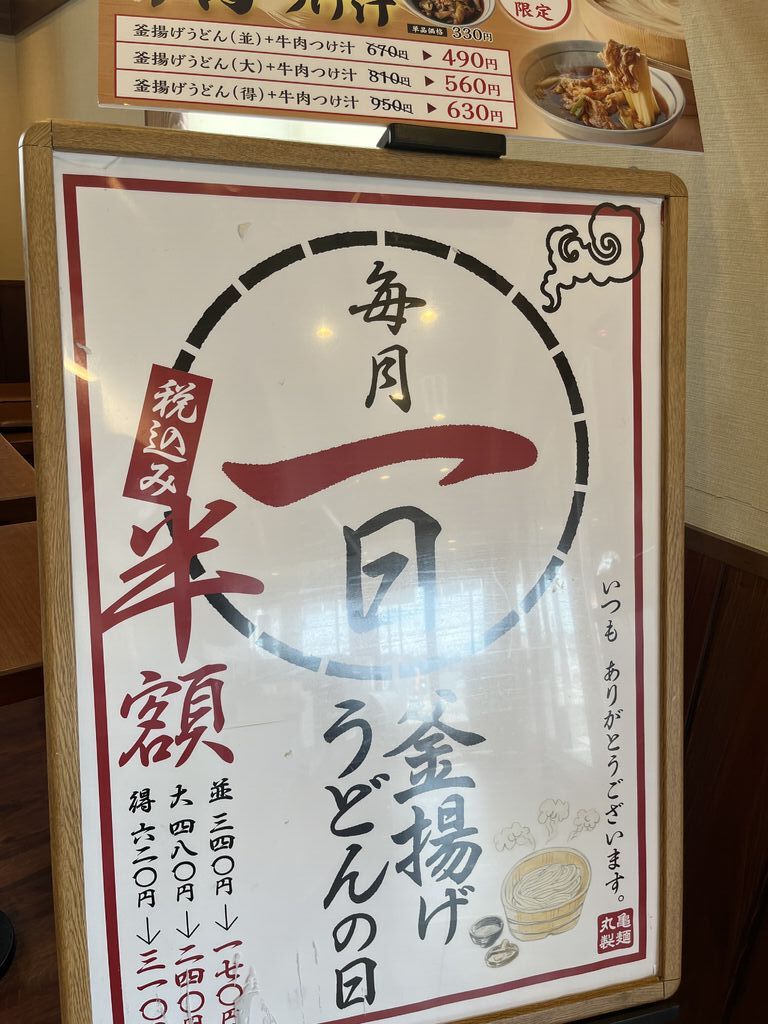 限定
つけ汁
単品価格 330円
釜揚げうどん(並)+牛肉つけ汁 670円 ▶ 490円
釜揚げうどん(大)+牛肉つけ汁 810円 ▶ 560円
釜揚げうどん(得)+牛肉つけ汁 950円 ▶ 630円
毎月
一日
釜揚げ
うどんの日
税込み
半額
並 三四〇円 → 一七〇円
大 四八〇円 → 二四〇円
得 六二〇円 → 三一〇
いつも ありがとうございます。
丸亀製麺